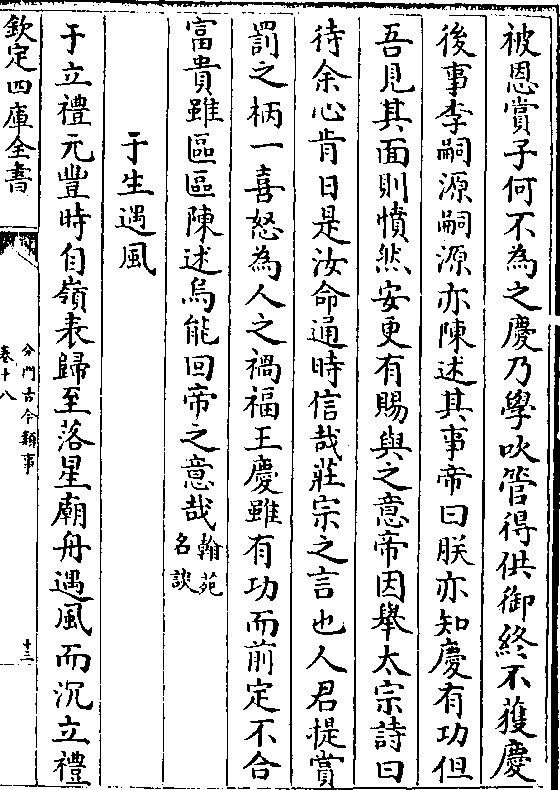 被恩賞子何不為之慶乃學吹管得供御終不獲慶
後事李嗣源嗣源亦陳述其事帝曰朕亦知慶有功但
吾見其面則憤然安更有賜與之意帝因舉太宗詩曰
待余心肯日是汝命通時信哉莊宗之言也人君提賞
罰之柄一喜怒為人之禍福王慶雖有功而前定不合
富貴雖區區陳述烏能回帝之意哉翰苑
名談
于生遇風
于立禮元豐時自嶺表歸至落星廟舟遇風而沉立禮
欽定四庫全書
分門古今類事
卷十八
十三